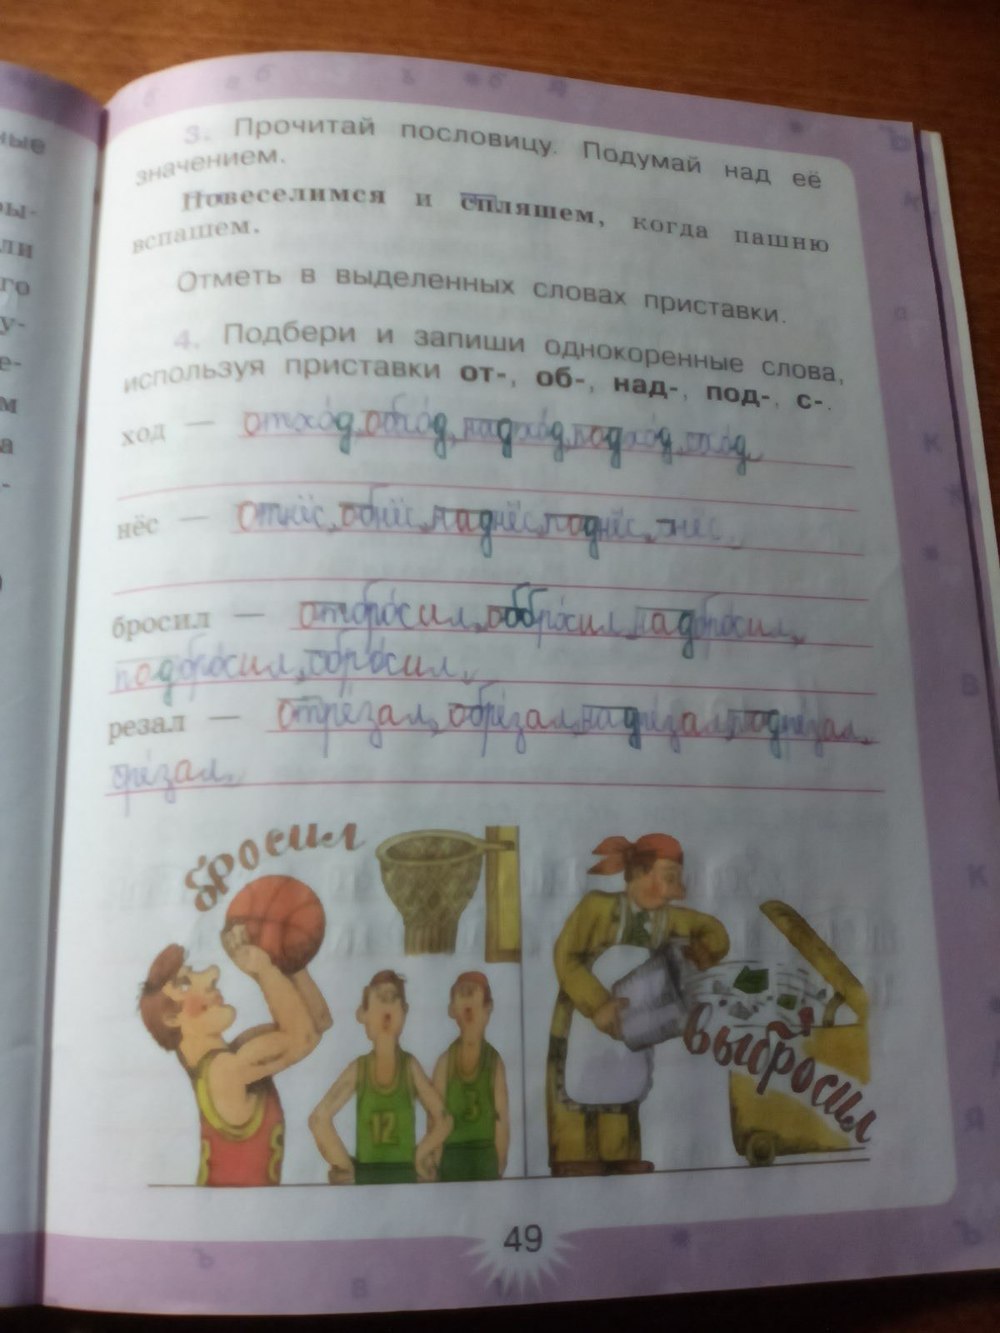 3. Прочитай пословицу. Подумай над её
значением.
Повеселимся и спляшем, когда пашню
вспашем.
Отметь в выделенных словах приставки.
4. Подбери и запиши однокоренные слова,
используя приставки от-, об-, над-, под-, с-.
ход — отход, обход, надход, подход, сход.
нёс — отнёс, обнёс, наднёс, поднёс, снёс.
бросил — отбросил, оббросил, надбросил,
подбросил, сбросил.
резал — отрезал, обрезал, надрезал, подрезал,
срезал.
бросил
выбросил
12
3
49